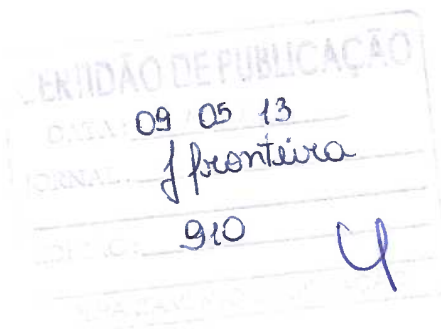 CERTIDÃO DE PUBLICAÇÃO
DATA: 09 05 13
JORNAL: J fronteira
EDIÇÃO: 910